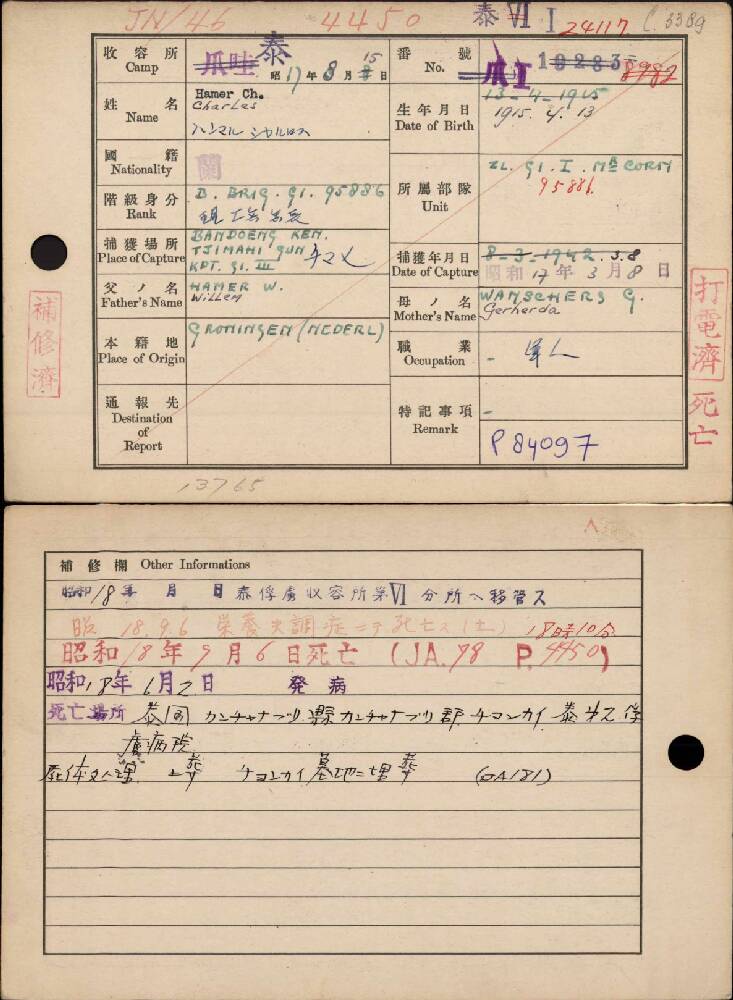 JN/46 4450 泰 VI I 24117 C. 3389
收容所 Camp 爪哇 泰 昭17年8月15日
番號 No. 爪I 10283 8982
姓名 Name Hamer Ch.
Charles
ハンマル シャルロス
生年月日 Date of Birth 13-4-1915
1915. 4. 13
國籍 Nationality 蘭
階級身分 Rank B. BRIG. GI. 95886
所屬部隊 Unit ZL. GI. I.
95886.
捕獲場所 Place of Capture BANDOENG KEN.
TJIMAHI GUN チマヒ
KPT. GI. III
捕獲年月日 Date of Capture 8-3-1942. 3.8
昭和17年3月8日
父ノ名 Father's Name HAMER W.
Willem
母ノ名 Mother's Name WANSCHERS G.
Gerherda
本籍地 Place of Origin GRONINGEN (NEDERL)
職業 Occupation - 軍人
通報先 Destination of Report
特記事項 Remark -
P 84097
補修濟
打電濟
死亡
13765
補修欄 Other Informations
昭和18年 月 日 泰俘虜收容所第VI分所ヘ移管ス
昭 18.9.6 栄養失調症ニテ死亡ス(土) 18時10分
昭和18年9月6日死亡 (JA.98 P.4450)
昭和18年6月2日 発病
死亡場所 泰国カンチャナブリ県カンチャナブリ郡チョンカイ泰 俘
虜病院
死体処理 土葬 チョンカイ墓地ニ埋葬 (GA181)